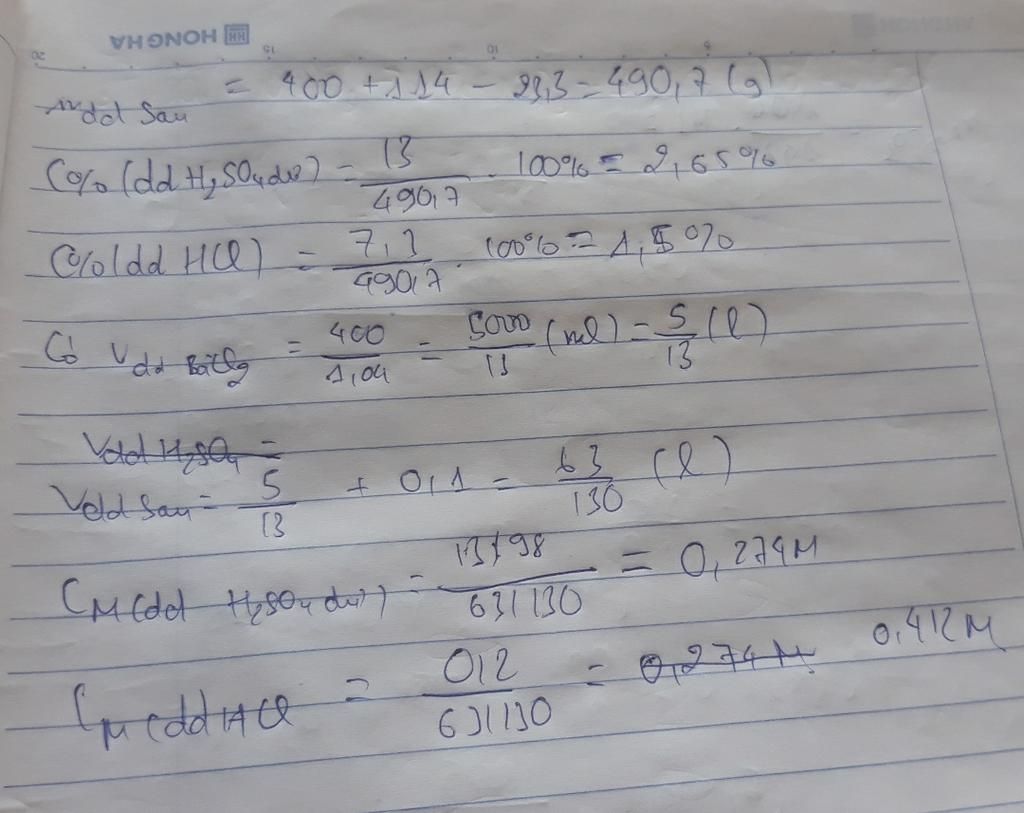 HONG HA
20 15 10 5
= 400 + 114 - 23,3 = 490,7 (g)
mdd sau
C% (dd H2SO4 dư) = 13/490,7 . 100% = 2,65%
C% (dd HCl) = 7,3/490,7 . 100% = 1,5%
Có Vdd BaCl2 = 400/1,04 = 5000/13 (ml) = 5/13 (l)
Vdd H2SO4 =
Vdd sau = 5/13 + 0,1 = 63/130 (l)
CM(dd H2SO4 dư) = 13/98 / 63/130 = 0,274M
CM(dd HCl = 0,2 / 63/130 = 0,274M 0,412M